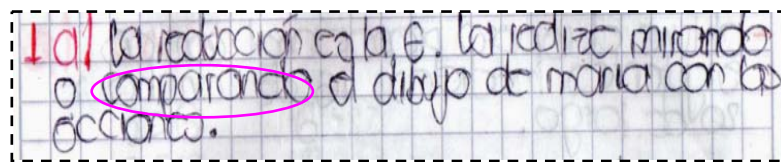 1 a) la reducción es la e. La realize mirando
o comparando el dibujo de maria con las
acciones.